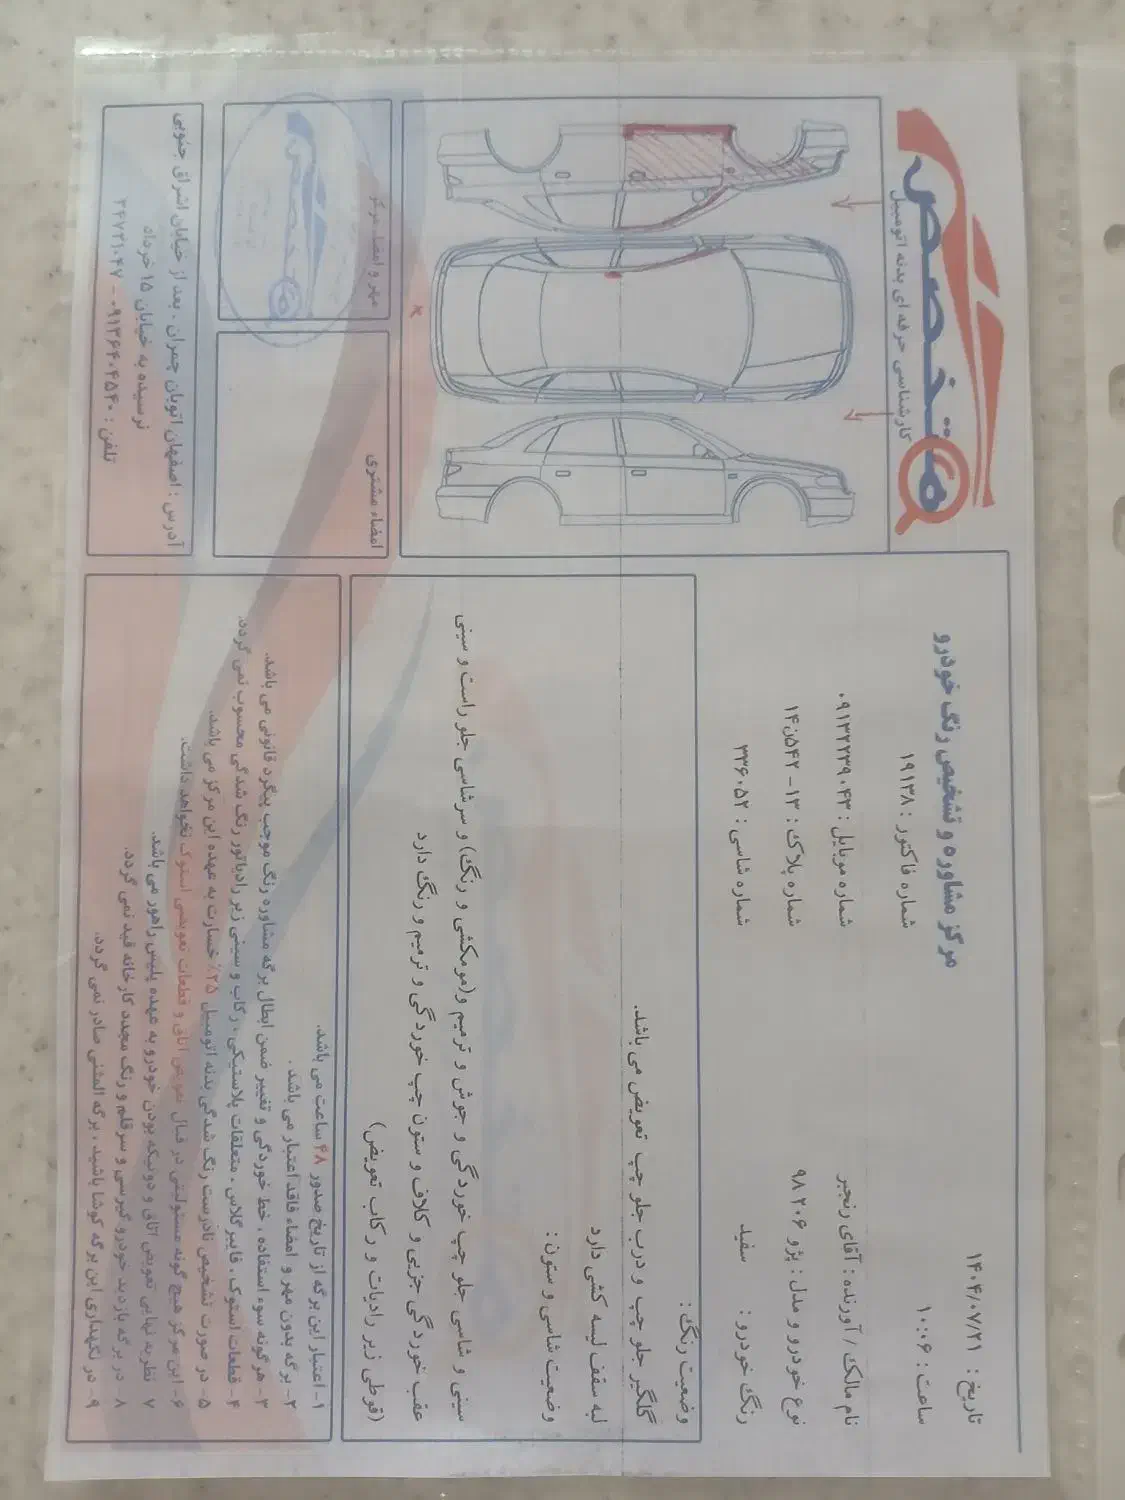 متخصص
کارشناسی حرفه ای بدنه اتومبیل
مرکز مشاوره و تشخیص رنگ خودرو
تاریخ : ۱۴۰۴/۰۷/۲۱
ساعت : ۱۰:۰۶
شماره فاکتور : ۱۹۱۳۸
نام مالک / آورنده : آقای رنجبر
شماره موبایل : ۰۹۱۳۲۲۳۹۰۴۳
نوع خودرو و مدل : پژو ۲۰۶ ۹۸
شماره پلاک : ۱۳ - ۵۴۲ن۱۴
رنگ خودرو : سفید
شماره شاسی : ۳۳۶۰۵۲
وضعیت رنگ :
گلگیر جلو چپ و درب جلو چپ تعویض می باشد.
لبه سقف لیسه کشی دارد
وضعیت شاسی و ستون :
سینی و شاسی جلو چپ خوردگی و جوش و ترمیم و(مومکشی و رنگ) و سرشاسی جلو راست و سینی
عقب خوردگی جزیی و کلاف و ستون چپ خوردگی و ترمیم و رنگ دارد
(قوطی زیر رادیات و رکاب تعویض)
۱- اعتبار این برگه از تاریخ صدور ۴۸ ساعت می باشد.
۲- برگه بدون مهر و امضاء فاقد اعتبار می باشد .
۳- هرگونه سوء استفاده ، خط خوردگی و تغییر ضمن ابطال برگه مشاوره رنگ موجب پیگرد قانونی می باشد.
۴- قطعات استوک ، فایبرگلاس ، متعلقات پلاستیکی ، رکاب و سینی زیر رادیاتور رنگ شدگی محسوب نمی گردد.
۵- در صورت تشخیص نادرست رنگ شدگی بدنه اتومبیل ۲۵٪ خسارت به عهده این مرکز می باشد.
۶- این مرکز هیچ گونه مسئولیتی در قبال تعویض اتاق و قطعات تعویضی استوک نخواهد داشت.
۷- نظریه نهایی تعویض اتاق و دوتیکه بودن خودرو به عهده پلیس راهور می باشد.
۸- در برگه بازدید خودرو گیرسی و سرقلم و رنگ مجدد کارخانه قید نمی گردد.
۹- در نگهداری این برگه کوشا باشید ، برگه المثنی صادر نمی گردد.
مهر و امضاء مرکز
امضاء مشتری
آدرس : اصفهان اتوبان چمران ، بعد از خیابان اشراق جنوبی
نرسیده به خیابان ۱۵ خرداد
تلفن : ۰۹۱۳۶۴۰۴۵۴۰ - ۳۴۷۳۱۰۴۷